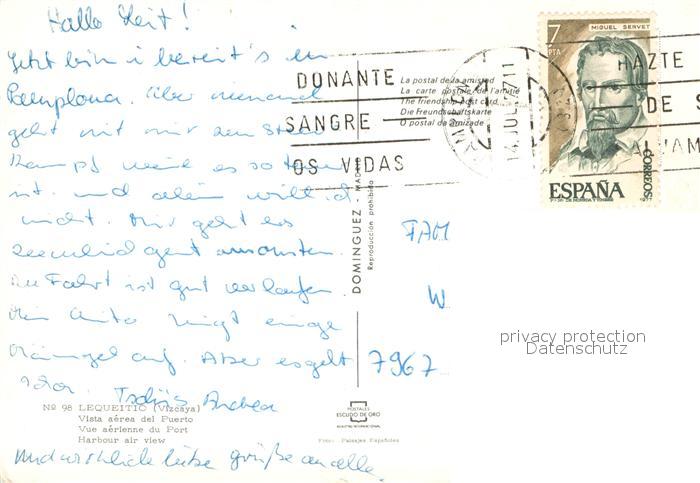 Hallo Leit!
Jetzt bin i bereit's in
Pamplona. Aber niemand
geht mit mir zum Stier
Kampf weil es so teuer
ist. und allein will ich
nicht. Mir geht es
ansonsten
Fahrt ist gut verlaufen
Auto zeigt einige
Mängel auf. Aber es geht
Tschüs Andrea
No 98 LEQUEITIO (Vizcaya)
Vista aérea del Puerto
Vue aérienne du Port
Harbour air view
liebe Grüße an alle.
DOMINGUEZ - MADRID
Reproducción prohibida
POSTALES
ESCUDO DE ORO
Foto: Paisajes Españoles
La postal de la amistad
La carte postale de l'amitié
The friendship post card
Die Freundschaftskarte
O postal da amizade
DONANTE
SANGRE
OS VIDAS
14 JUL
7
PTA
MIGUEL SERVET
ESPAÑA
CORREOS
1977
HAZTE
DE S
ALVAM
FAM
W
7967
privacy protection
Datenschutz